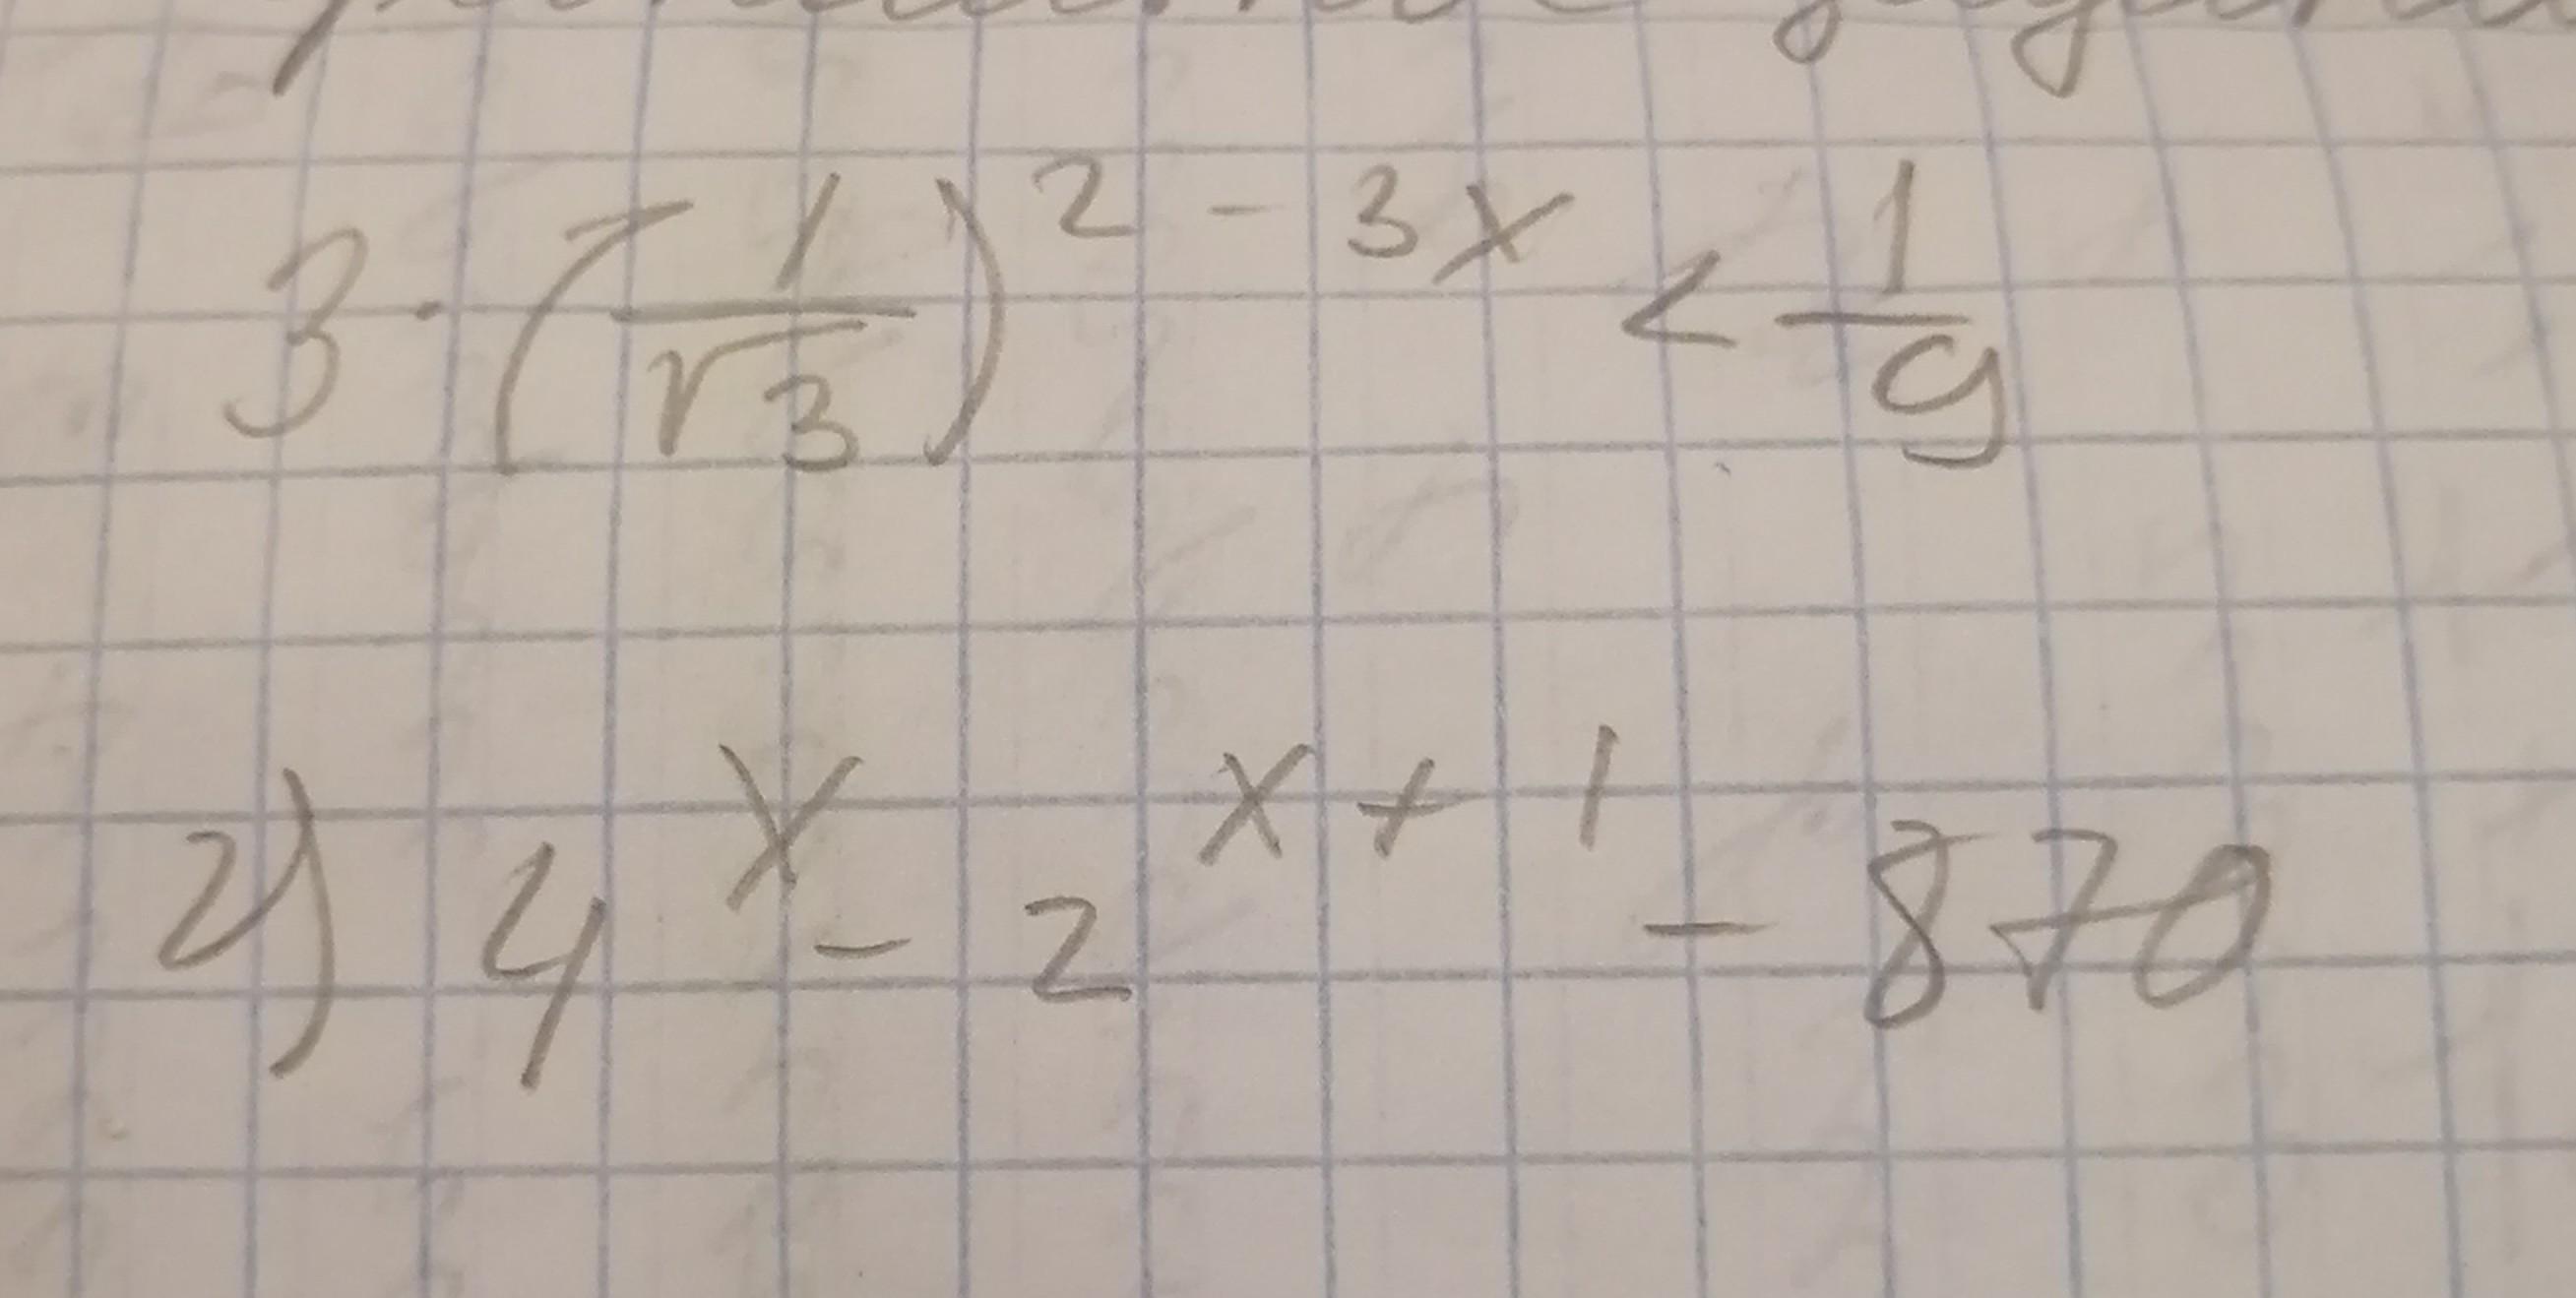 3 · (1/√3)^(2 - 3x) < 1/9
2) 4^x - 2^(x + 1) - 870